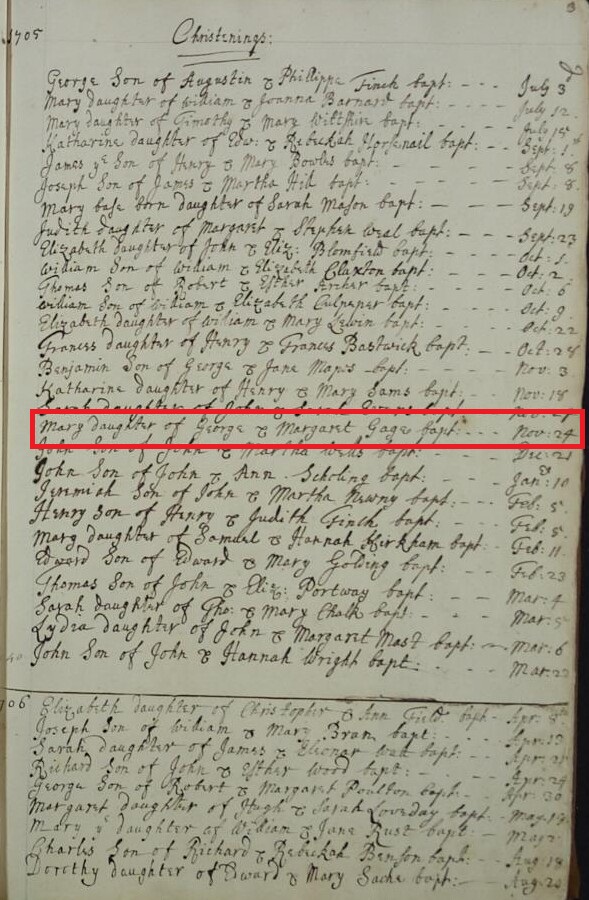 3
1705 Christenings:
George Son of Augustin & Phillippe Finch bapt: - - - July 3d
Mary daughter of William & Joanna Barnard bapt: - - - - July 12
Mary daughter of Timothy & Mary Wiltshire bapt: - - - July 15
Katharine daughter of Edw: & Rebeckah Horsenail bapt: - - Sept: 1st
James ye Son of Henry & Mary Bowles bapt: - - - Sept: 8
Joseph Son of James & Martha Hill bapt: - - - - - Sept: 8.
Mary base born daughter of Sarah Mason bapt: - - - Sept: 19
Judith daughter of Margaret & Stephen Weal bapt: - - - Sept: 23
Elizabeth daughter of John & Eliz: Blomfield bapt: - - - Oct: 1.
William Son of William & Elizabeth Claxton bapt: - - - Oct: 2.
Thomas Son of Robert & Esther Archer bapt: - - - Oct: 6
William Son of William & Elizabeth Culpener bapt: - - - Oct: 9
Elizabeth daughter of William & Mary Lewin bapt: - - - Oct: 22
Frances daughter of Henry & Frances Bastwick bapt - - Oct: 28
Benjamin Son of George & Jane Mapes bapt: - - - Nov: 3
Katharine daughter of Henry & Mary Sams bapt. - - - Nov: 18
Sarah daughter of John & Sarah bapt:
Mary daughter of George & Margaret Gage bapt: - - - Nov: 24
John Son of John & Martha Wells bapt: - - - Dec: 21
John Son of John & Ann Scholing bapt: - - - Jan: 10
Jeremiah Son of John & Martha Newny bapt: - - - Feb: 5.
Henry Son of Henry & Judith Finch bapt: - - - Feb: 5
Mary daughter of Samuel & Hannah Kirkham bapt: - Feb: 11.
Edward Son of Edward & Mary Golding bapt: - - - Feb: 23
Thomas Son of John & Eliz: Portway bapt: - - - Mar: 4
Sarah daughter of Tho: & Mary Chalk bapt: - - - Mar: 5
Lydia daughter of John & Margaret Mast bapt: - - Mar: 6
John Son of John & Hannah Wright bapt: - - - Mar: 22
706 Elizabeth daughter of Christopher & Ann Field bapt - Apr: 8th
Joseph Son of William & Mary Bran bapt: - - - Apr: 13
Sarah daughter of James & Elionar bapt: - - - Apr: 21
Richard Son of John & Esther Wood bapt: - - - Apr: 24
George Son of Robert & Margaret Poulton bapt: - - - Apr: 30
Margaret daughter of Hugh & Sarah Loveday bapt: - - May:
Mary ye daughter of William & Jane Rust bapt: - - May
Charles Son of Richard & Rebeckah Benson bapt: - - Aug: 18
Dorothy daughter of Edward & Mary Sache bapt: - - Aug: